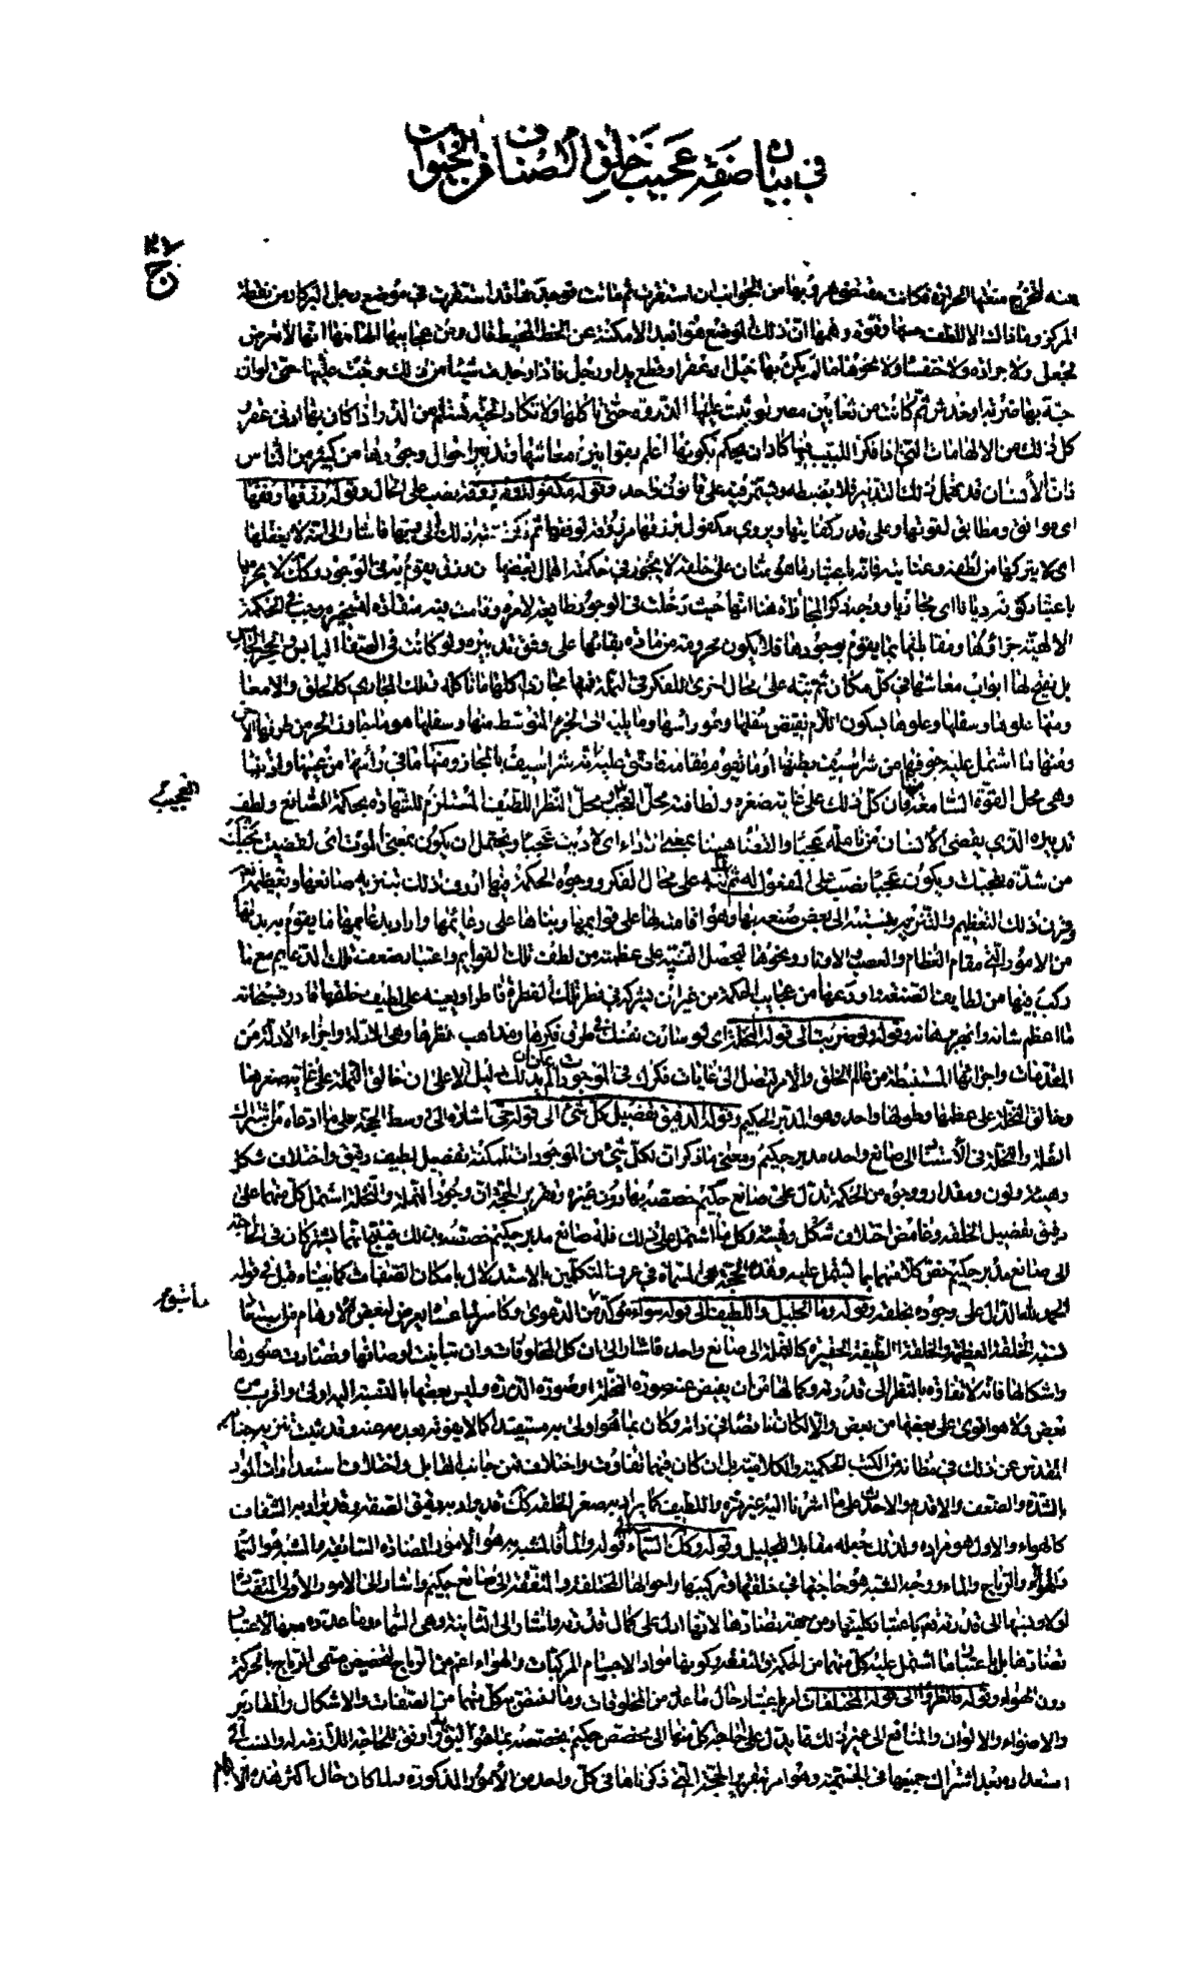 في بيان صنفة عجيب خلق أصناف من الحيوان
٣٧
ج
منه لتخرج منعتها الحرارة فكانت مقتضى هربها من الجوانب ان استقرت ثم ماتت فوجدتها قد استقرت في موضع رجل البركار من نقطة
المركز وما ذاك الا للطف حسها وقوة وهمها ان ذلك الموضع هو ابعد الامكنة عن الخط المحيط قال ومن عجايبها الهامها انها لا تعرض
لجعل ولا جرادة ولا خنفساء ولا نحوها ما لم يكن بها خبل او عقر او قطع يد او رجل فاذا وجدت شيئا من ذلك وثبت عليها حتى لو ان
حية بها ضربة او خدش ثم كانت من ثعابين مصر لوثبت عليها الذر حتى تأكلها ولا تكاد الحية تسلم من الذر اذا كان بها ادنى عقر
كل ذلك من الالهامات التي اذا فكر اللبيب فيها كاد ان يحكم بكونها اعلم بقوانين معاشها وتدبير احوال وجودها من كثير من الناس
فان الانسان قد يهمل ذلك التدبير فلا يضبطه ويستمر فيه على قانون واحد وقوله مكفولة ومرزوقة نصب على الحال وقوله رزقها وفقها
اي موافق ومطابق لقوتها وعلى قدر كفايتها ويروى مكفول برزقها مرزوقة لوفقها ثم ذكر نسبة ذلك الى ربها فاشار الى انه لا يغفلها
اي لا يتركها من لطفه وعنايته فانه باعتبار ما هو منان على خلقه لا يجوز في حكمته اهمال بعضها من رزق يقوم به في الوجود وكذلك لا يحرمها
باعتبار كونه ديانا اي مجازيا ووجه ذكر المجازاة هنا انها حيث دخلت في الوجود طائعة لامره وقامت فيه منقادة لتسخيره وجب في الحكمة
الالهية جزاؤها ومقابلتها بما يقوم بوجودها فلا يكون محرومة من مادة بقائها على وفق تدبيره ولو كانت في الصفا اليابس والحجر الجامس
بل يفتح لها ابواب معاشها في كل مكان ثم نبه على محال اخرى للفكر في النملة فمنها مجاري اكلها ما تأكله وتلك المجاري كالحلق والامعاء
ومنها علوها وسفلها وعلوها بسكون اللام نقيض سفلها وهو رأسها وما يليه الى الجزء المتوسط منها وسفلها هو ما جاوز الجزء من طرفها الآخر
ومنها ما اشتمل عليه جوفها من شراسيف بطنها او ما يقوم مقامها فاطلق عليه انه شراسيف بالمجاز ومنها ما في رأسها من عينها واذنها
وهي محل القوة السامعة منها فان كل ذلك على غاية صغره ولطافته محل العجب محل النظر اللطيف المستلزم للشهادة بحكمة الصانع ولطف
التعجب
تدبيره الذي يقضي الانسان من تأمله عجبا والقضاء هيهنا بمعنى الاداء اي لاديت عجبا ويحتمل ان يكون بمعنى الموت اي لقضيت نحبك
من شدة تعجبك ويكون عجبا نصب على المفعول له ثم نبه على محال الفكر ووجوه الحكمة فيها اردف ذلك بتنزيه صانعها وتعظيمه
وقرن ذلك التعظيم والتنزيه بنسبته الى بعض صنعه بها وهو اقامته لها على قوائمها وبناها على دعائمها واراد بدعائمها ما يقوم به بدنها
من الامور التي مقام العظام والعصب والاوتار ونحوها ليحصل التنبيه على عظمته من لطف تلك القوايم واعتبار ضعف تلك الدعايم مع ما
ركب فيها من لطايف الصنعة واودعها من عجايب الحكمة من غير ان يشركه في فطرة تلك الفطرة فاطر او يعينه على لطيف خلقها قادر فسبحانه
ما اعظم شانه وابهر برهانه وقوله ولو ضربت الى قوله النخلة اي لو سارت نفسك في طرق فكرها ومذاهب نظرها وهي الادلة واجزاء الادلة من
المقدمات واجزائها المستنبطة من عالم الخلق والامر لتصل الى غايات فكرك في الموجودات لم يدلك دليل الا على ان خالق النملة على غاية صغرها
وخالق النخلة على عظمها وطولها واحد وهو المدبر الحكيم وقوله لدقيق تفصيل كل شئ الى قوله حي اشارة الى وسط الحجة على ما ادعاه من اشتراك
النملة والنخلة في الاستناد الى صانع واحد مدبر حكيم ومعنى ما ذكر ان لكل شئ من الموجودات الممكنة تفصيل لطيف دقيق واختلاف شكل
وهيئة ولون ومقدار ووجوه من الحكمة تدل على صانع حكيم خصصه بها دون غيره وتقرير الحجة ان وجود النملة والنخلة اشتمل كل منهما على
دقيق تفصيل الخلقة وغامض اختلاف شكل وهيئة وكل ما اشتمل على ذلك فله صانع مدبر حكيم خصصه بذلك فينتج انهما يشتركان في الحاجة
الى صانع مدبر حكيم خص كلا منهما بما يشتمل عليه وهذه الحجة هي المسماة في عرف المتكلمين بالاستدلال بامكان الصفات كما بيناه قبل في قوله
الحمد لله الدال على وجوده بخلقه وقوله وما الجليل واللطيف الى قوله سواء مؤكد من الدعوى وكاسر لما عساه يعرض لبعض الاوهام من استبعاد
ما شبق
نسبة الخلقة العظيمة والخلقة اللطيفة الحقيرة كالنملة الى صانع واحد فاشار الى ان كل المخلوقات وان تباينت اوصافها وتضادت صورها
واشكالها فانه لا تفاوت بالنظر الى قدرته وكمالها من ان يفيض عنه صورة النخلة او صورة الذرة وليس بعضها بالنسبة اليه اولى واقرب من
بعض ولا هو اقوى على بعضها من بعض والا لكان ناقصا في ذاته وكان بما هو اولى به مستفيدا كمالا يفوته بعدمه عنه وقد ثبت تنزيه جنابه
المقدس عن ذلك في مظانه من الكتب الحكمية والكلامية بل ان كان فيها تفاوت واختلاف فمن جانب القابل واختلاف استعدادات المواد
بالشدة والضعف والاقدم والاحدث على ما اشرنا اليه غير مرة واللطيف كما يراد به صغر الخلقة كذلك قد يراد به دقيق الصنعة وقد يراد به الشفاف
كالهواء والاول هو مراده ولذلك جعله مقابلا للجليل وقوله وكذلك السماء الى قوله والماء فالمشبه به هو الامور المضادة السابقة والمشبه هو السماء
والهواء والرياح والماء ووجه الشبه هو حاجتها في خلقتها وتركيبها واحوالها المختلفة والمتفقة الى صانع حكيم واشار الى الامور الاول المتضادة
اولا ونسبها الى قدرته ثم باعتبار كليتها ومن جهة تضادها لانها ادل على كمال قدرته واشار الى الثانية وهي السماء وما عدده معها لا باعتبار
تضادها بل باعتبار ما اشتمل عليه كل منهما من الحكمة والمنفعة وكونها مواد الاجسام المركبات والهواء اعم من الرياح لتخصيص مسمى الرياح بالحركة
دون الهواء وقوله فانظر الى قوله المختلفات امر باعتبار حال ما عدد من المخلوقات وما تضمن به كل منها من الصفات والاشكال والمقادير
والاضواء والالوان والمنافع الى غير ذلك مما يدل على حاجة كل منها الى مخصص حكيم يخصصه بما هو اليق به واوفق للحاجة اللازمة له والنسبة الى
استعداده بعد اشتراك جميعها في الجسمية وهو امر بتقرير الحجة التي ذكرناها في كل واحد من الامور المذكورة ولما كان حال اكثر هذه الاجسام